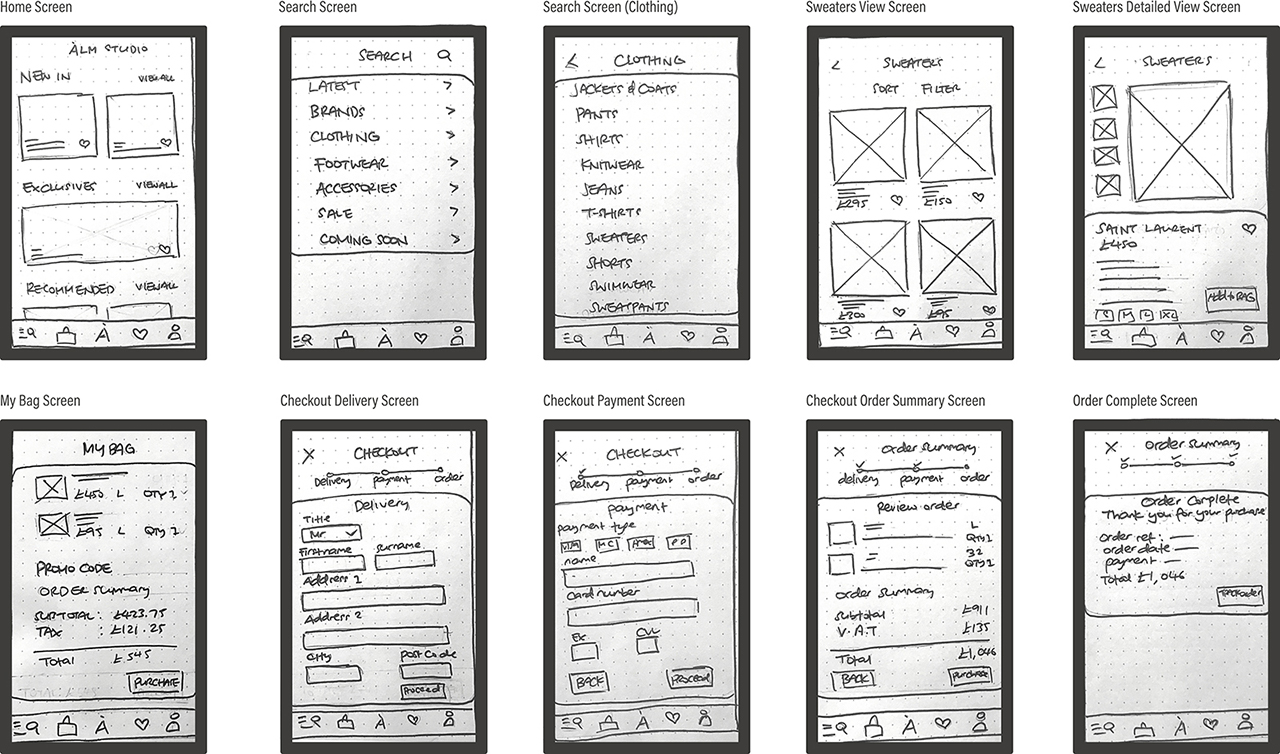 Home Screen
ÀLM STUDIO
NEW IN VIEW ALL
EXCLUSIVES VIEW ALL
RECOMMENDED VIEW ALL
À
Search Screen
SEARCH
LATEST >
BRANDS >
CLOTHING >
FOOTWEAR >
ACCESSORIES >
SALE >
COMING SOON >
À
Search Screen (Clothing)
< CLOTHING
JACKETS & COATS
PANTS
SHIRTS
KNITWEAR
JEANS
T-SHIRTS
SWEATERS
SHORTS
SWIMWEAR
SWEATPANTS
À
Sweaters View Screen
< SWEATERS
SORT FILTER
£295 £150
£300 £95
À
Sweaters Detailed View Screen
< SWEATERS
SAINT LAURENT
£450
Add to BAG
S M L XL
À
My Bag Screen
MY BAG
£450 L QTY 1
£95 L QTY 1
PROMO CODE
ORDER Summary
SUBTOTAL : £423.75
TAX : £121.25
Total £545
PURCHASE
À
Checkout Delivery Screen
X CHECKOUT
Delivery payment order
Delivery
Title
Mr
First name Surname
Address 1
Address 2
City Post Code
Proceed
À
Checkout Payment Screen
X CHECKOUT
Delivery payment order
payment
payment type
VISA MC AMEX PP
name
Card number
Ex CVV
BACK PROCEED
À
Checkout Order Summary Screen
X order summary
delivery payment order
Review order
L
QTY 1
32
QTY 1
order summary
Subtotal £911
V.A.T £135
Total £1,046
BACK purchase
À
Order Complete Screen
X order summary
Order Complete
Thank you for your purchase
order ref :
order date
payment
Total £1,046
Track order
À